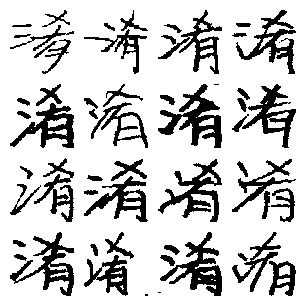 淆淆淆淆
淆淆淆淆
淆淆淆淆
淆淆淆淆